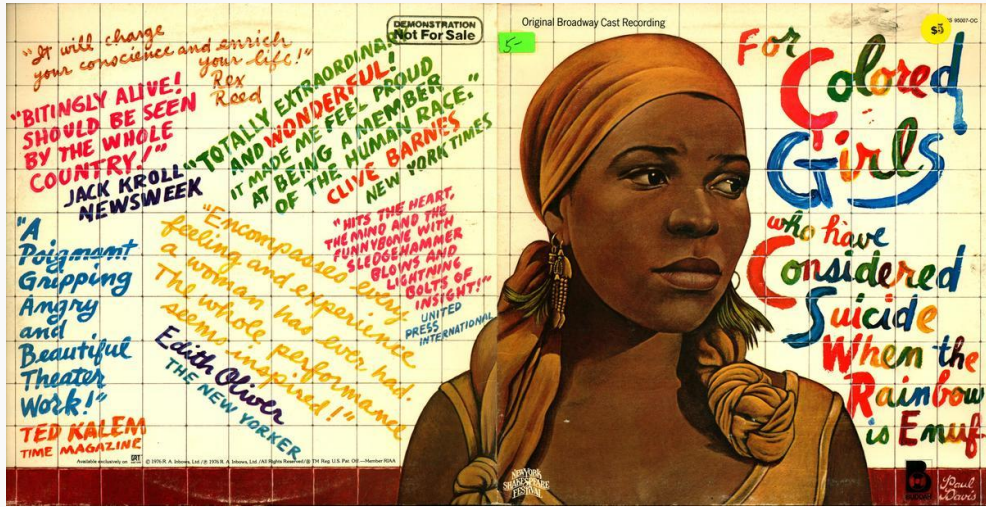 "It will charge
your conscience and enrich
your life!"
Rex
Reed
"BITINGLY ALIVE!
SHOULD BE SEEN
BY THE WHOLE
COUNTRY!"
JACK KROLL
NEWSWEEK
"TOTALLY EXTRAORDINARY
AND WONDERFUL!
IT MADE ME FEEL PROUD
AT BEING A MEMBER
OF THE HUMAN RACE."
CLIVE BARNES
NEW YORK TIMES
DEMONSTRATION
Not For Sale
"A
Poignant
Gripping
Angry
and
Beautiful
Theater
Work!"
TED KALEM
TIME MAGAZINE
"Encompasses every
feeling and experience
a woman has ever had.
The whole performance
seems inspired!"
Edith Oliver
THE NEW YORKER
"HITS THE HEART,
THE MIND AND THE
FUNNYBONE WITH
SLEDGEHAMMER
BLOWS AND
LIGHTNING
BOLTS OF
INSIGHT!"
UNITED
PRESS
INTERNATIONAL
Available exclusively on GRT © 1976 R. A. Inbows, Ltd. / ℗ 1976 R. A. Inbows, Ltd. /All Rights Reserved/® TM Reg. U.S. Pat. Off.—Member RIAA
5-
Original Broadway Cast Recording
$5
95007-OC
For
Colored
Girls
who have
Considered
Suicide
When the
Rainbow
is Enuf
NEW YORK
SHAKESPEARE
FESTIVAL
B
BUDDAH
Paul
Davis